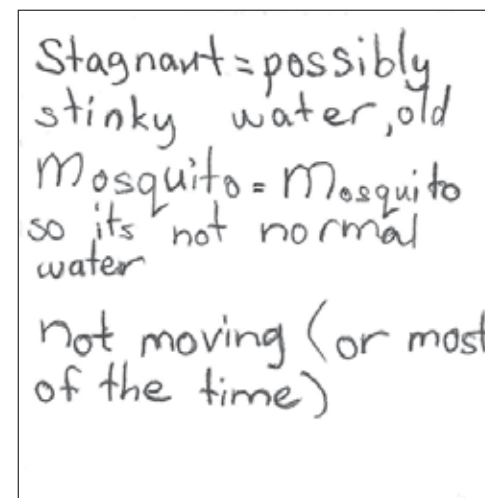 Stagnant = possibly
stinky water, old
Mosquito = Mosquito
so its not normal
water
not moving (or most
of the time)